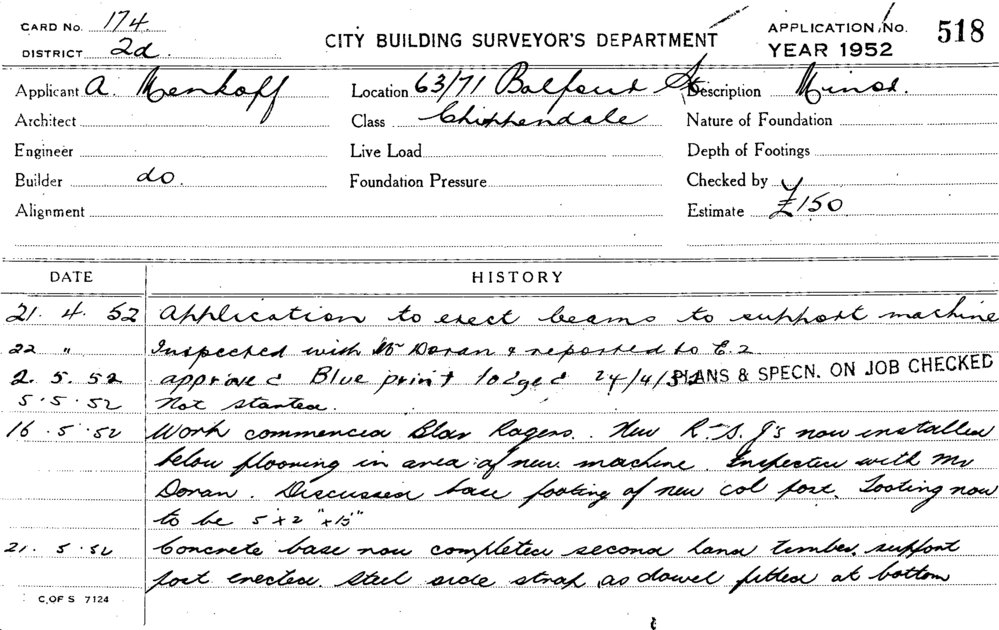 CARD No. 174.
DISTRICT 2d
CITY BUILDING SURVEYOR'S DEPARTMENT
APPLICATION No. 518
YEAR 1952
Applicant A. Menkoff Location 63/71 Balfour St Description Minor.
Architect Class Chippendale Nature of Foundation
Engineer Live Load Depth of Footings
Builder do. Foundation Pressure Checked by
Alignment Estimate £150
DATE HISTORY
21. 4. 52 Application to erect beams to support machine
22 " Inspected with Mr Doran & reported to E.2
2. 5. 52 approved Blue print lodged 24/4/52 PLANS & SPECN. ON JOB CHECKED
5. 5. 52 Not started.
16. 5. 52 Work commenced Rogers. New R.S.J's now installed
below flooring in area of new machine. Inspected with Mr
Doran. Discussed base footing of new col post. Footing now
to be
21. 5. 52 Concrete base now completed second hand timber support
post erected. Steel side strap as dowel fitted at bottom
C. OF S 7124